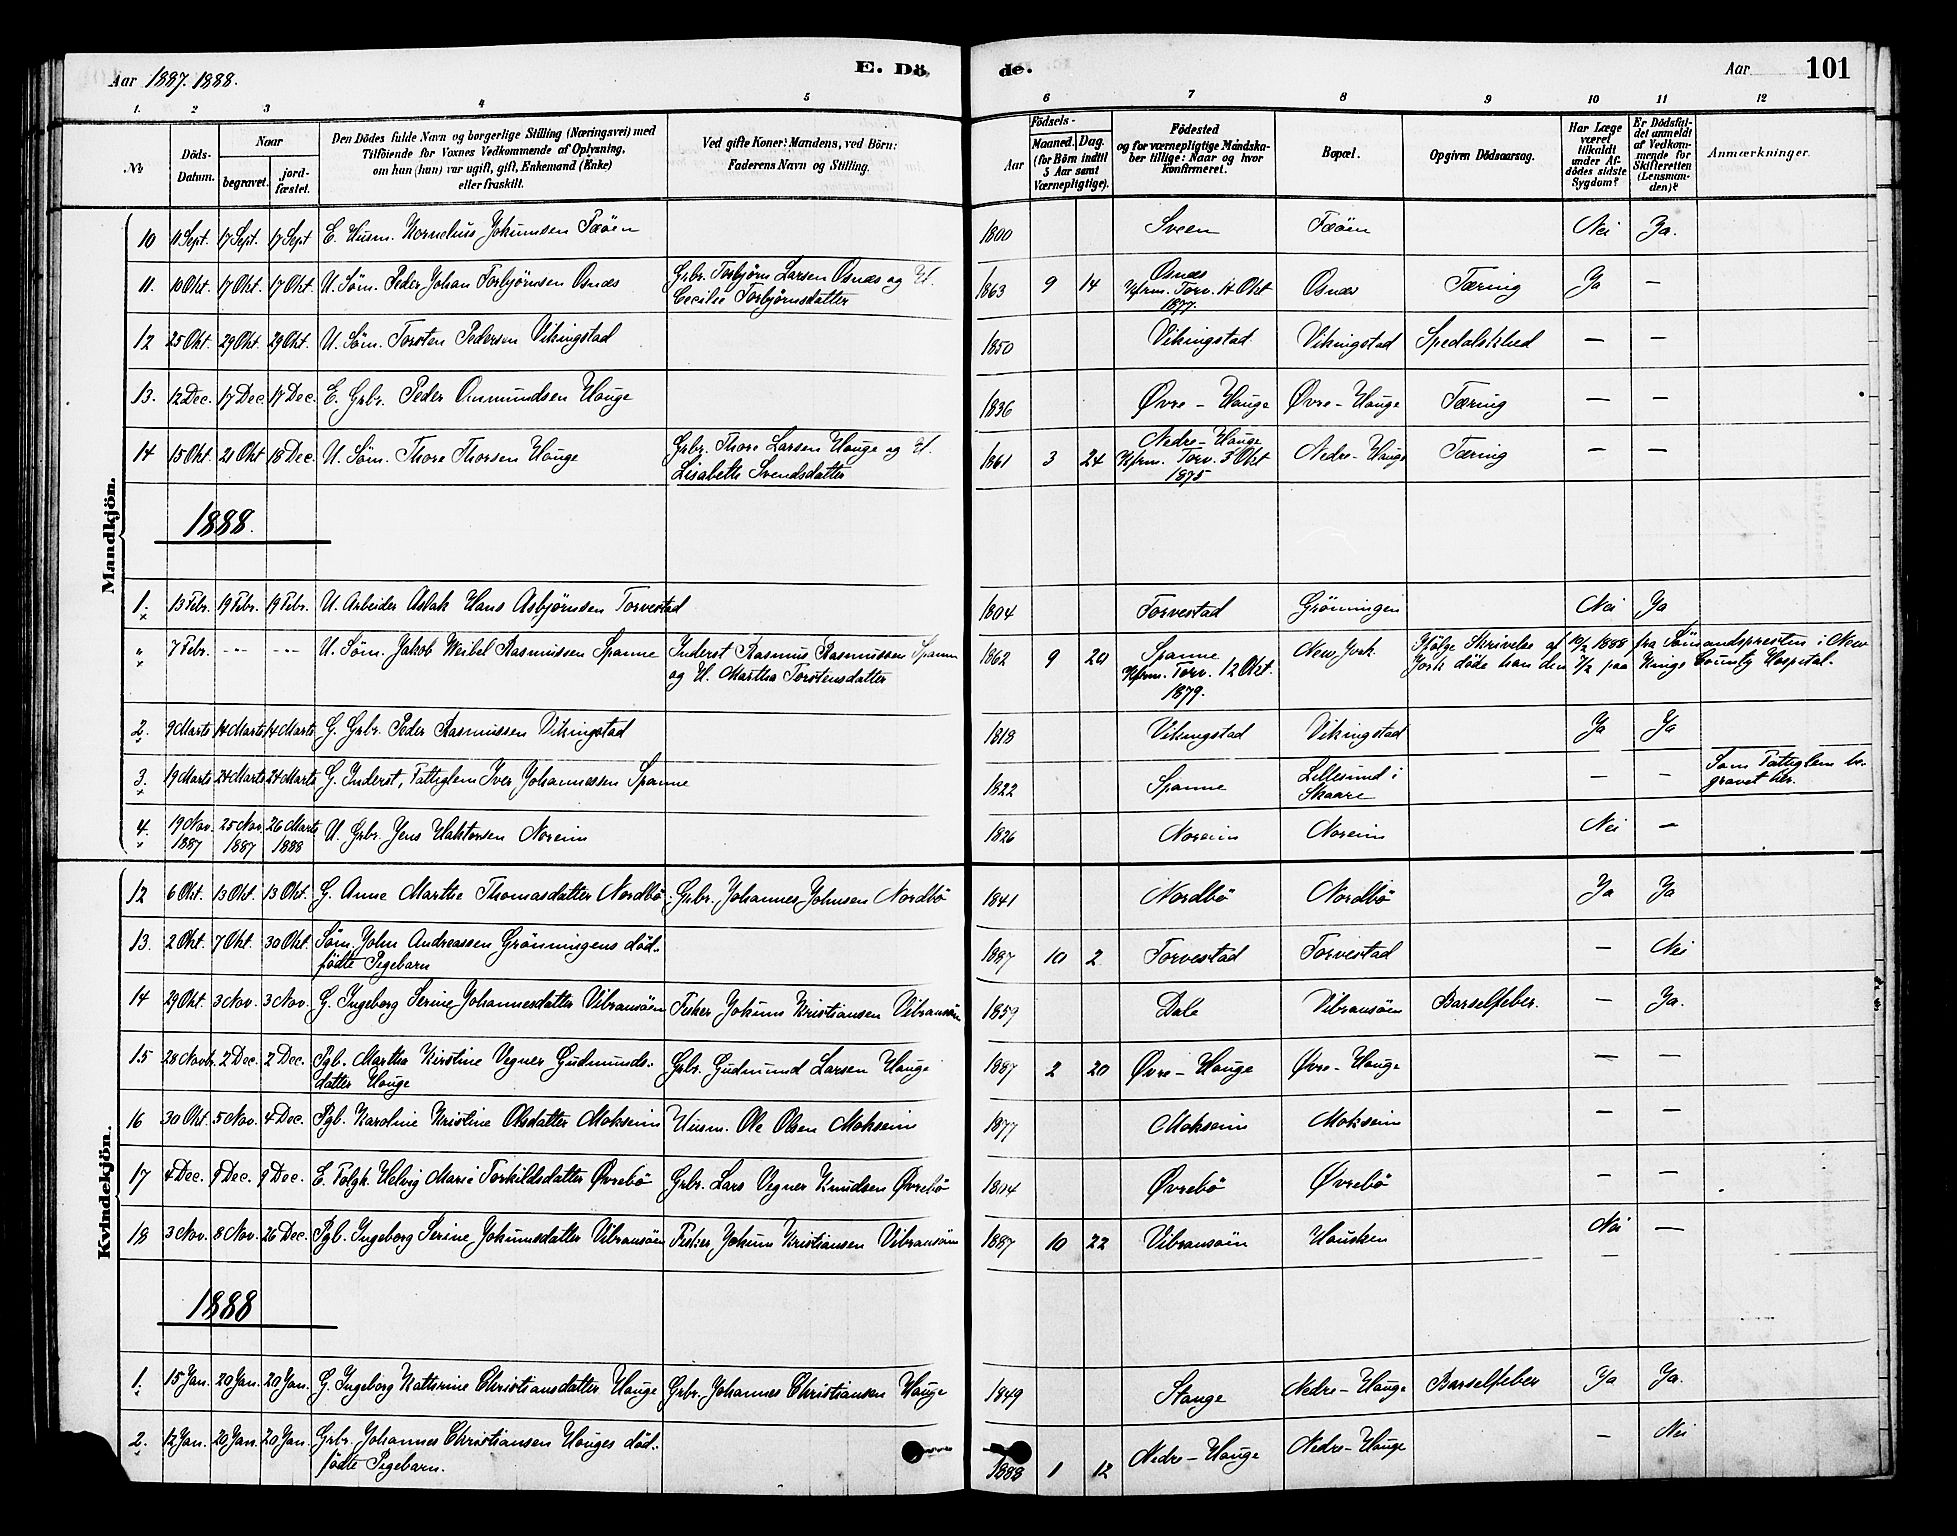 Aar 1887. 1888.
E. Dö de.
Aar
101
1. 2 3 4 5 6 7 8 9 10 11 12
No
Döds-Datum.
Naar
begravet.
jord-fæstet.
Den Dödes fulde Navn og borgerlige Stilling (Næringsvei) med
Tilföiende for Voxnes Vedkommende af Oplysning,
om han (hun) var ugift, gift, Enkemand (Enke)
eller fraskilt.
Ved gifte Koner: Mandens, ved Börn:
Faderens Navn og Stilling.
Födsels-
Aar
Maaned. Dag.
(for Börn indtil
5 Aar samt
Værnepligtige).
Födested
og for værnepligtige Mandska-
ber tillige: Naar og hvor
konfirmeret.
Bopæl.
Opgiven Dödsaarsag.
Har Læge
været
tilkaldt
under Af-
dödes sidste
Sygdom?
Er Dödsfal-
det anmeldt
af Vedkom-
mende for
Skifteretten
(Lensman-
den)?
Anmærkninger.
Mandkjön.
10 11 Sept. 17 Sept. 17 Sept E. Husm. Kornelius Jokumsen Fæöen 1800 Sveen Fæöen Nei Ja.
11. 10 Okt. 17 Okt. 17 Okt. U. Söm. Peder Johan Torbjörnsen Osnæs Grbr. Torbjörn Larsen Osnæs og H. Cecilie Torbjörnsdatter 1863 9 14 Osnæs Kfrm. Torv. 14 Okt 1877. Osnæs Tæring Ja —
12 25 Okt. 29 Okt. 29 Okt. U. Söm. Torsten Pedersen Vikingstad 1850 Vikingstad Vikingstad Spedalskhed — —
13. 12 Dec. 17 Dec. 17 Dec. E. Grbr. Peder Omundsen Hauge 1836 Øvre - Hauge Øvre - Hauge Tæring — —
14 15 Okt. 21 Okt 18 Dec. U. Söm. Thore Thorsen Hauge Grbr. Thore Larsen Hauge og H. Lisabeth Svendsdatter 1861 3 24 Nedre - Hauge Kfrm. Torv. 3 Okt 1875 Nedre - Hauge Tæring — —
1888.
1. 13 Febr. 19 Febr. 19 Febr. U. Arbeider Aslak Hans Asbjörnsen Torvestad 1804 Torvestad Grönningen Nei Ja
" 7 Febr. --- --- U. Söm. Jakob Weibel Rasmussen Spanne Inderst Rasmus Rasmussen Spanne og H. Martha Torstensdatter 1862 9 20 Spanne Kfrm. Torv. 12 Okt. 1879. New York Ifölge Skrivelse af 10/2 1888 fra Sömandspresten i New York döde han den 7/2 paa Kings County Hospital.
2. 9 Marts 14 Marts 14 Marts G. Grbr. Peder Rasmussen Vikingstad 1818 Vikingstad Vikingstad Ja Ja
3. 19 Marts 24 Marts 24 Marts G. Inderst, Fattiglem Iver Johannessen Spanne 1822 Spanne Lillesund i Skaare — — Som Fattiglem begravet her.
4. 19 Nov. 1887 25 Nov 1887 26 Marts 1888 U. Grbr. Jens Haktorsen Noreim 1826 Noreim Noreim Nei —
Kvindekjön.
12 6 Okt. 13 Okt. 13 Okt. G. Anne Marthe Thomasdatter Nordbö Grbr. Johannes Johnsen Nordbö 1841 Nordbö Nordbö Ja Ja
13. 2 Okt. 7 Okt. 30 Okt. Söm. John Andreassen Grönningens död-födte Pigebarn 1887 10 2 Torvestad Torvestad — Nei
14 29 Okt. 3 Nov. 3 Nov. G. Ingeborg Serine Johannesdatter Vibransöen Fisker Jokum Kristiansen Vibransöen 1859 Dale Vibransöen Barselfeber. — Ja.
15 28 Novbr. 2 Dec. 2 Dec. Pgb. Marthe Kirstine Vegner Gudmunds-datter Hauge Grbr. Gudmund Larsen Hauge 1887 2 20 Øvre - Hauge Øvre - Hauge — —
16 30 Okt. 5 Nov. 4 Dec. Pgb. Karoline Kristine Olsdatter Mokseim Husm. Ole Olsen Mokseim 1877 Mokseim Mokseim — —
17 4 Dec. 9 Dec. 9 Dec. E. Folgk. Helvig Marie Torkildsdatter Øvrebö Grbr. Lars Vegner Knudsen Øvrebö Øvrebö Øvrebö — —
18 3 Nov. 8 Nov. 26 Dec. Pgb. Ingeborg Serine Jokumsdatter Vibransöen Fisker Jokum Kristiansen Vibransöen 1887 10 22 Vibransöen Hausken Nei —
1888
1. 15 Jan. 20 Jan. 20 Jan. G. Ingeborg Kathrine Christiansdatter Hauge Grbr. Johannes Christiansen Hauge 1849 Stange Nedre - Hauge Barselfeber Ja Ja.
2. 12 Jan. 20 Jan. 20 Jan. Grbr. Johannes Christiansen Hauges död-födte Pigebarn. 1888 1 12 Nedre - Hauge Nedre - Hauge — Nei